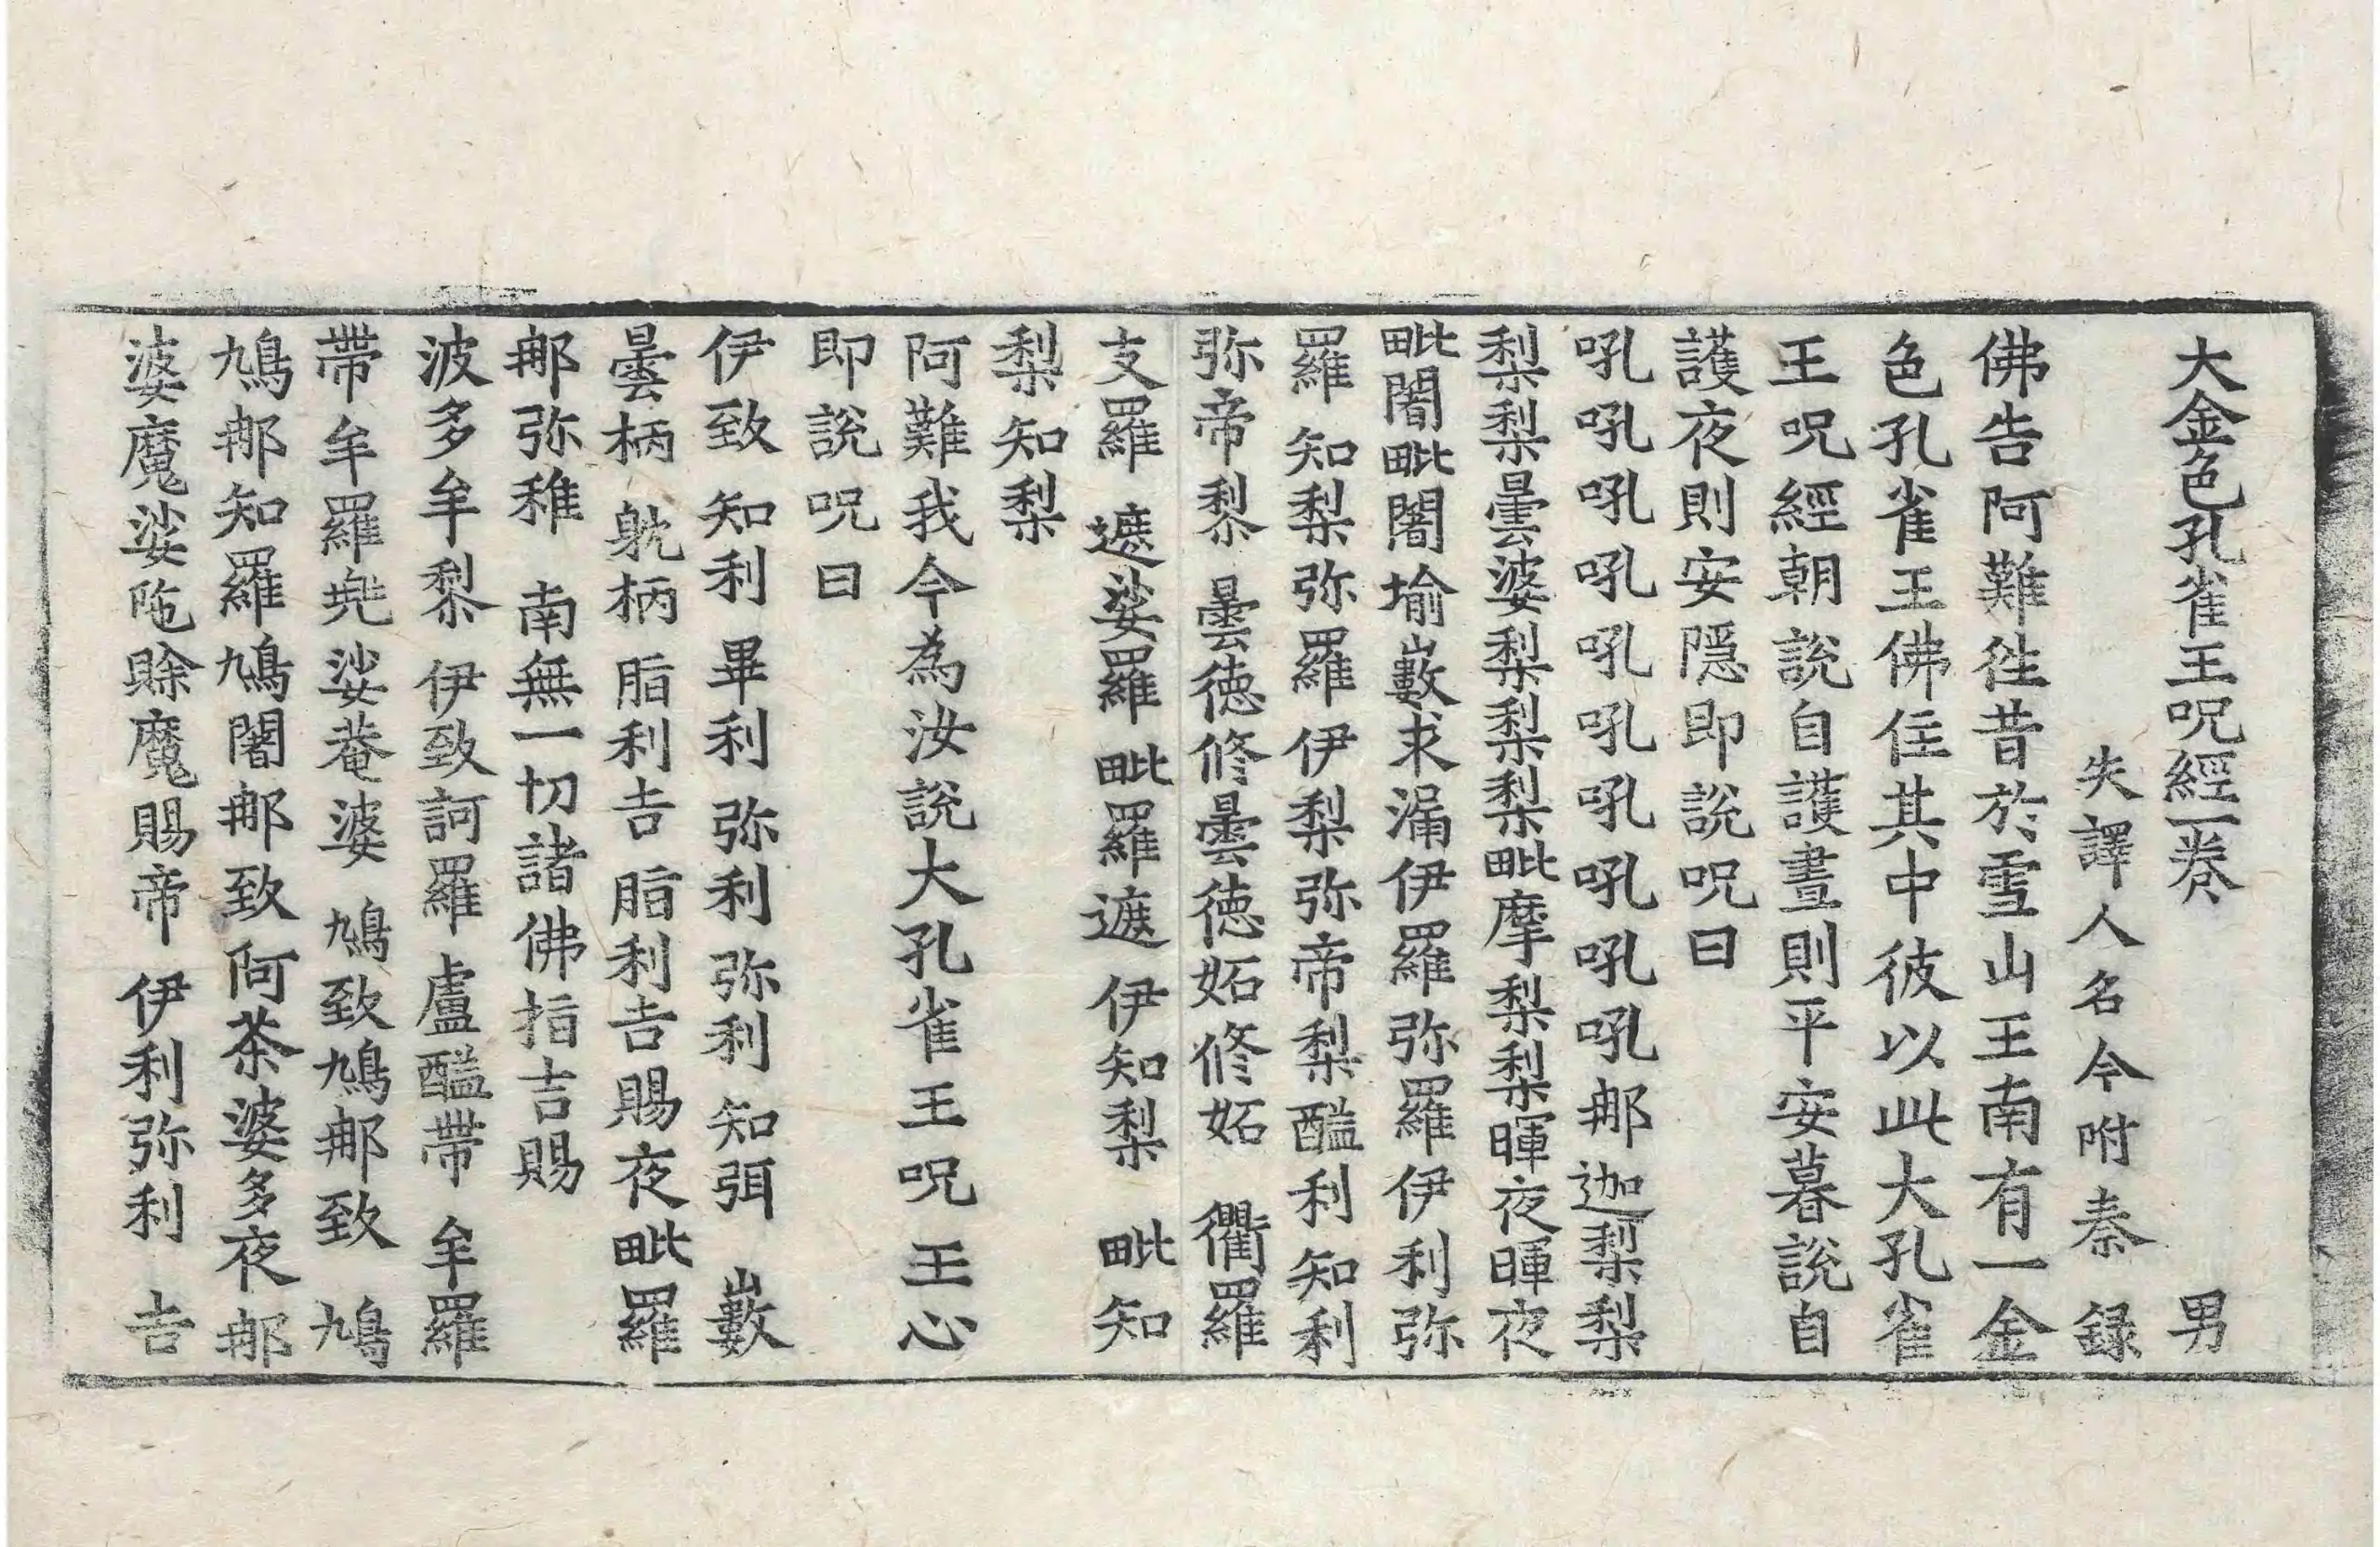 大金色孔雀王呪經一卷 男
失譯人名今附秦錄
佛告阿難徃昔於雪山王南有一金
色孔雀王佛住其中彼以此大孔雀
王呪經朝說自護晝則平安暮說自
護夜則安隱即說呪曰
吼吼吼吼吼吼吼吼吼吼那迦梨梨
梨梨曇婆梨梨梨毗摩梨梨暉夜暉夜
毗闍毗闍揄藪求漏伊羅弥羅伊利弥
羅 知梨弥羅 伊梨弥帝梨醯利知利
弥帝黎 曇德修曇德妬修妬 衢羅
支羅 遮娑羅 毗羅遮 伊知梨 毗知
梨知梨
阿難我今為汝說大孔雀王呪王心
即說呪曰
伊致 知利 畢利 弥利 弥利 知弭 藪
曇柄 躭柄 脂利吉 脂利吉賜夜毗羅
那弥稚 南無一切諸佛指吉賜
波多牟黎 伊致訶羅 盧醯帶 牟羅
帶牟羅兠娑菴婆 鳩致鳩那致 鳩
鳩那知羅鳩闍那致阿茶婆多夜那
婆魔娑陁賒魔賜帝 伊利弥利 吉